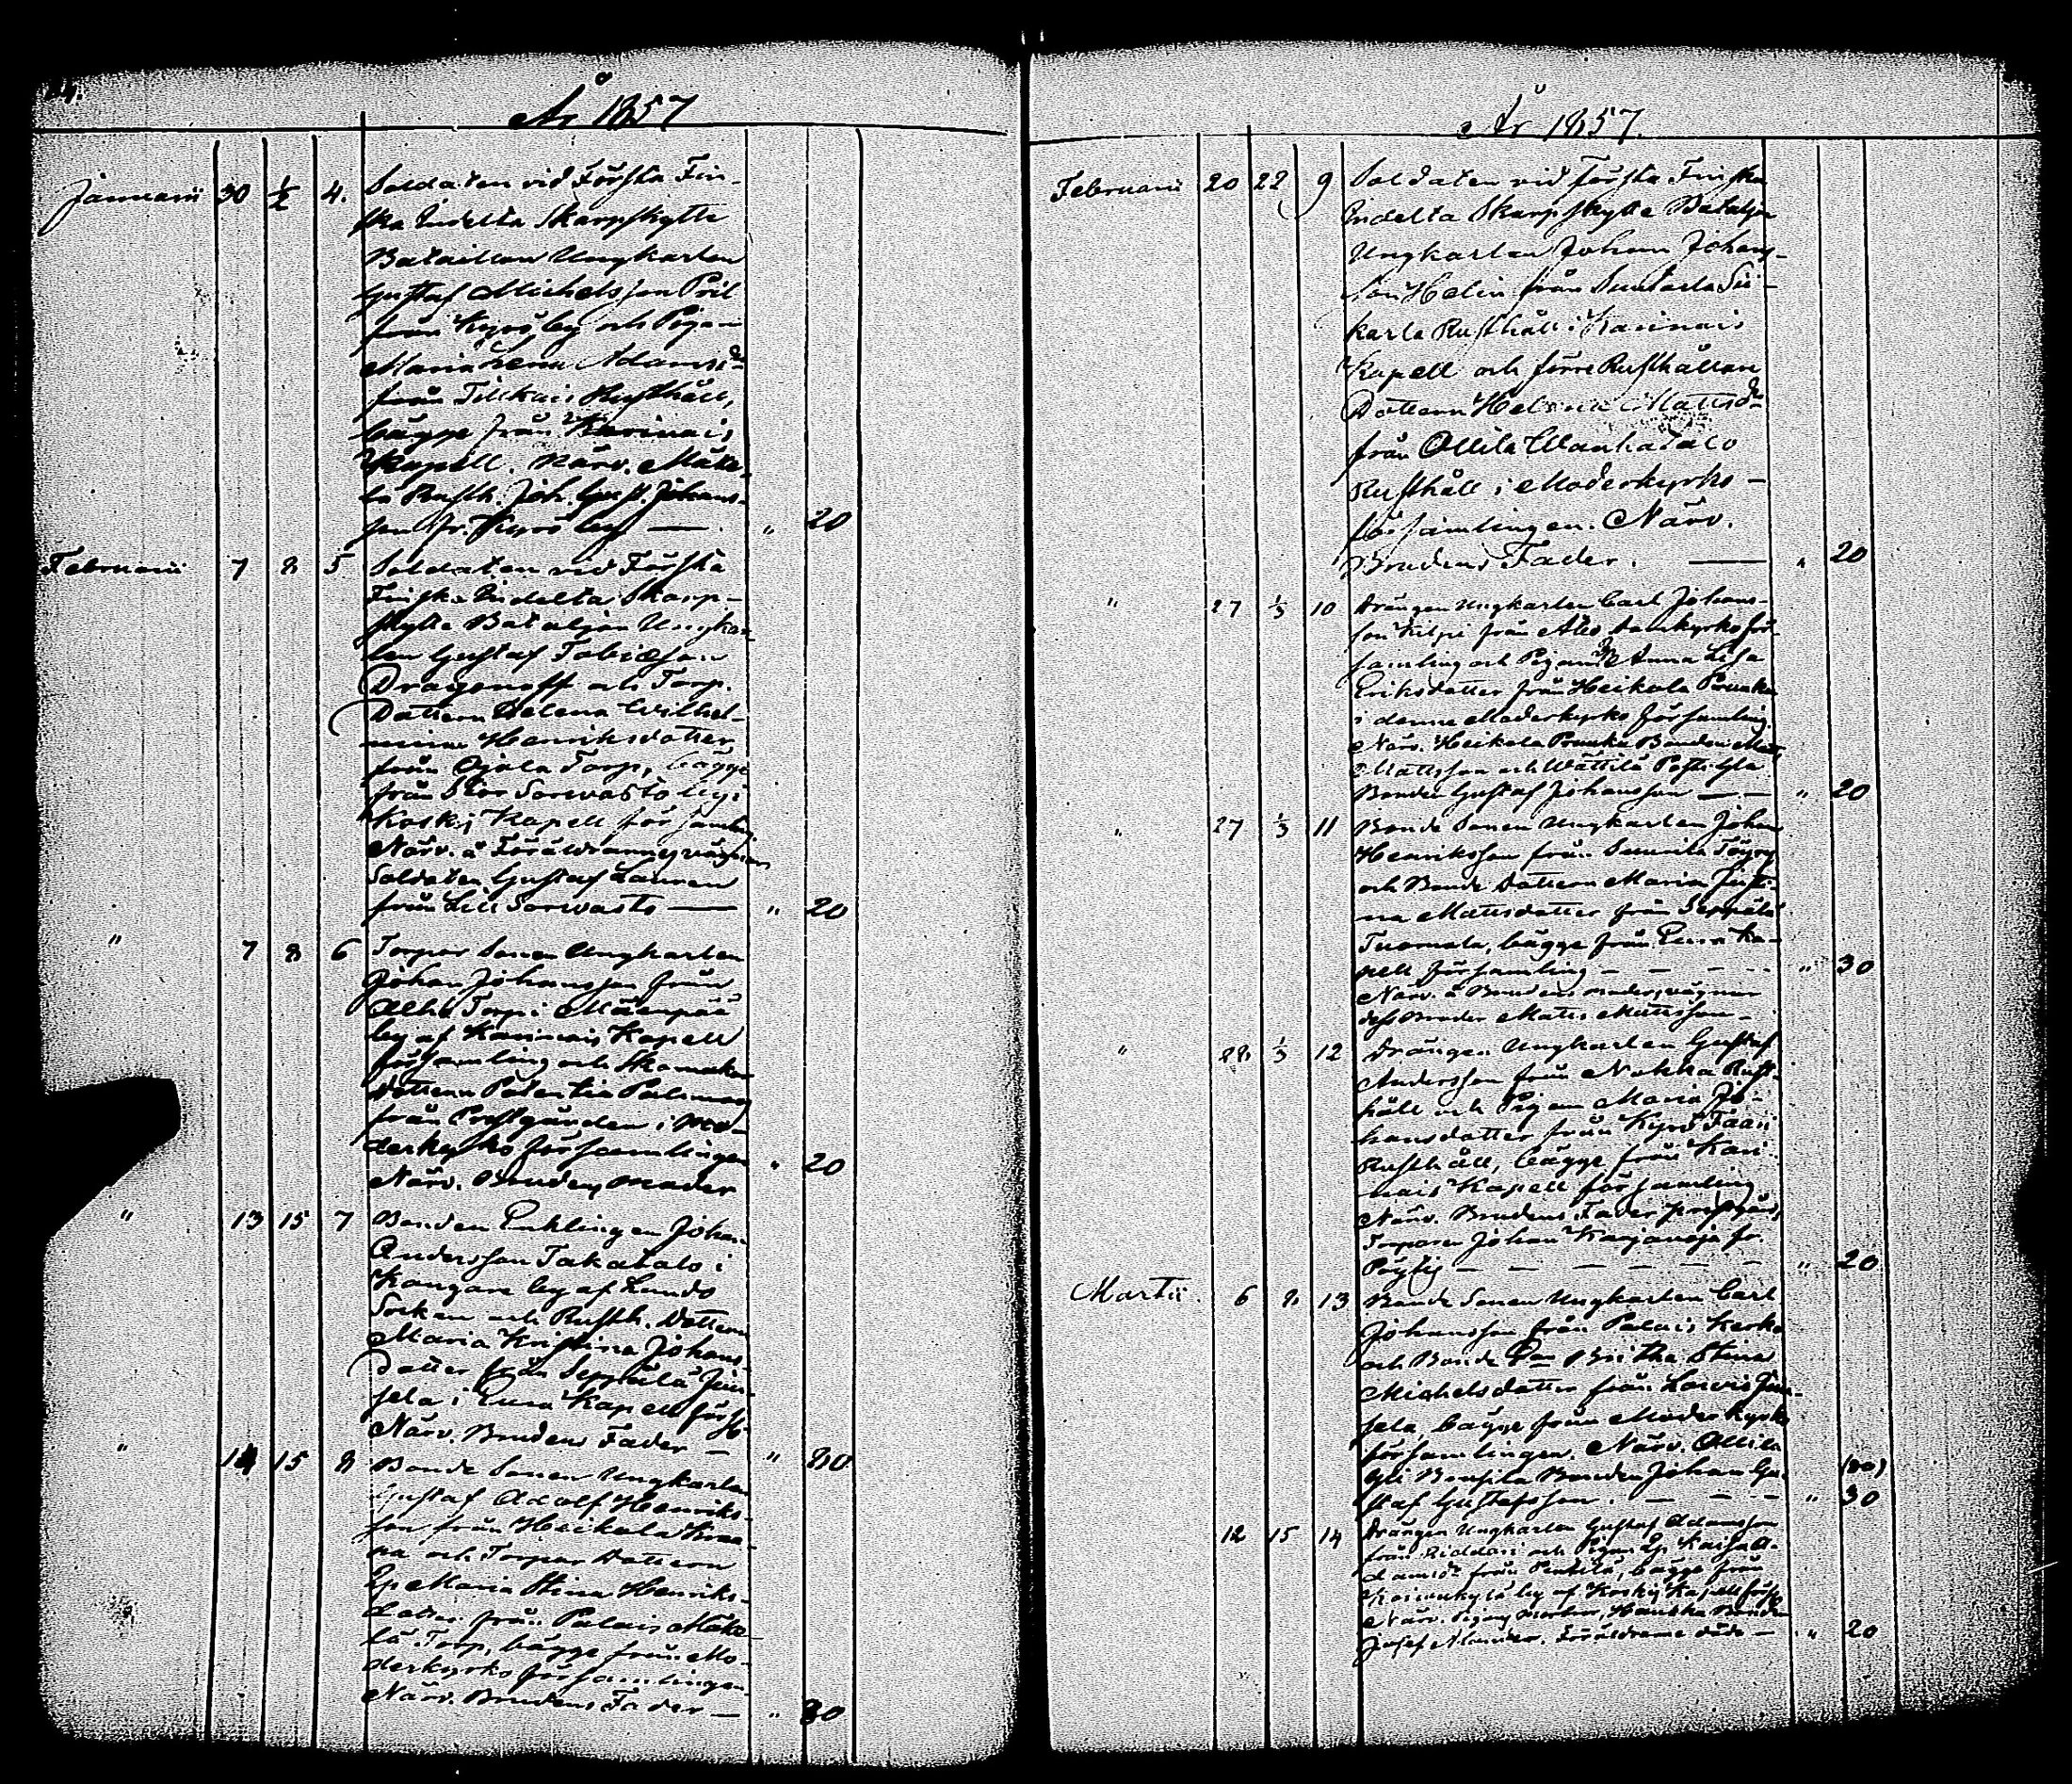 År 1857
Januarii 30 1/2 4. Soldaten vid Första Fin-
ska Indelta Skarpskytte
Bataillon Ungkarlen
Gustaf Michelsson Pril
från Kyrö by och Pigan
Maria Lena Adamsdr
från Tilkais Rusthåll,
bägge från Karinais
Kapell. Närv. Mäke-
lä Rusth. Joh. Gust. Johans-
son fr. Kyrö by — " 20
Februarii 7 8 5 Soldaten vid Första
Finska Indelta Skarp-
skytte Bataljon Ungkar-
len Gustaf Tobiæson
Dragonoff och Torp.
Dottern Helena Wilhel-
mina Henriksdotter
från Ojala Torp, bägge
från Stor Sorvasto by i
Koskis Kapell församling.
Närv. å Föräldrarnes vägnar
Soldaten Gustaf Lauren
från Lill Sorvasto — " 20
" 7 8 6 Torpar Sonen Ungkarlen
Johan Johansson från
Alho Torp i Mäenpää
by af Karinais Kapell
församling och Skomakar
dottern Potentia Palmroos
från Prestgården i Mo-
derkyrko församlingen " 20
Närv. Brudens Moder
" 13 15 7 Bonden Enklingen Johan
Andersson Takatalo i
Kangare by af Lundo
Socken och Rusth. Dottern
Maria Kristina Johans-
dotter från Seppälä Jun-
sela i Eura Kapell förs.
Närv. Brudens Fader — " 80
" 14 15 8 Bonde Sonen Ungkarlen
Gustaf Adolf Henriks-
son från Heikola
och Torpar Dottern
Ep. Maria Stina Henriks-
dotter från Palais Mäke-
lä Torp, bägge från Mo-
derkyrko församlingen.
Närv. Brudens Fader — " 30
År 1857.
Februarii 20 22 9 Soldaten vid Första Finska
Indelta Skarpskytte Bataljon
Ungkarlen Johan Johans-
son Helin från Suntarla Sii-
karla Rusthåll i Karinais
Kapell och förre Rusthållare
Dottern Helena Mattsdr
från Ollila Wanhatalo
Rusthåll i Moderkyrko-
församlingen. Närv.
Brudens Fader. — " 20
" 27 1/3 10 Drängen Ungkarlen Carl Johans-
son Kilpi från Åbo Domkyrko för-
samling och Pigan Anna Lisa
Eriksdotter från Heikola Prunka
i denna Moderkyrko församling.
Närv. Heikola Prunka Bonden Matts
Mattsson och Wättilä
Bonden Gustaf Johansson — — " 20
" 27 1/3 11 Bonde Sonen Ungkarlen Johan
Henriksson från Suurila Töyry
och Bonde dottern Maria Justi-
na Mattsdotter från Seppälä
Tuomala, bägge från Eura Ka-
pell församling — — — — " 30
Närv. å Brudens moders vägnar
dess Broder Matts Mattsson —
" 28 1/3 12 Drängen Ungkarlen Gustaf
Andersson från Nokka Rust-
håll och Pigan Maria Jo-
hansdotter från Kyrö Taari
Rusthåll, bägge från Kari-
nais Kapell församling
Närv. Brudens Fader
Torparen Johan Karjanoja fr.
Pöytis — — — — — " 20
Martii. 6 8 13 Bonde Sonen Ungkarlen Carl
Johansson från Palais Kerko
och Bonde Britha Stina
Michelsdotter från Lowis Jun-
sela, bägge från Moderkyrko
församlingen. Närv. Ollila
Yli Bonden Johan Gu- (80)
staf Gustafsson. — — — " 30
12 15 14 Drängen Ungkarlen Gustaf Adamsson
från Riddari och Pigan Ep. Kaisa A-
damsdr från Penkilä, bägge från
Koivukylä by af Koskis Kapell förs.
Närv. Pigans Morbror, Bonden
Josef Föräldrarne döde — " 20